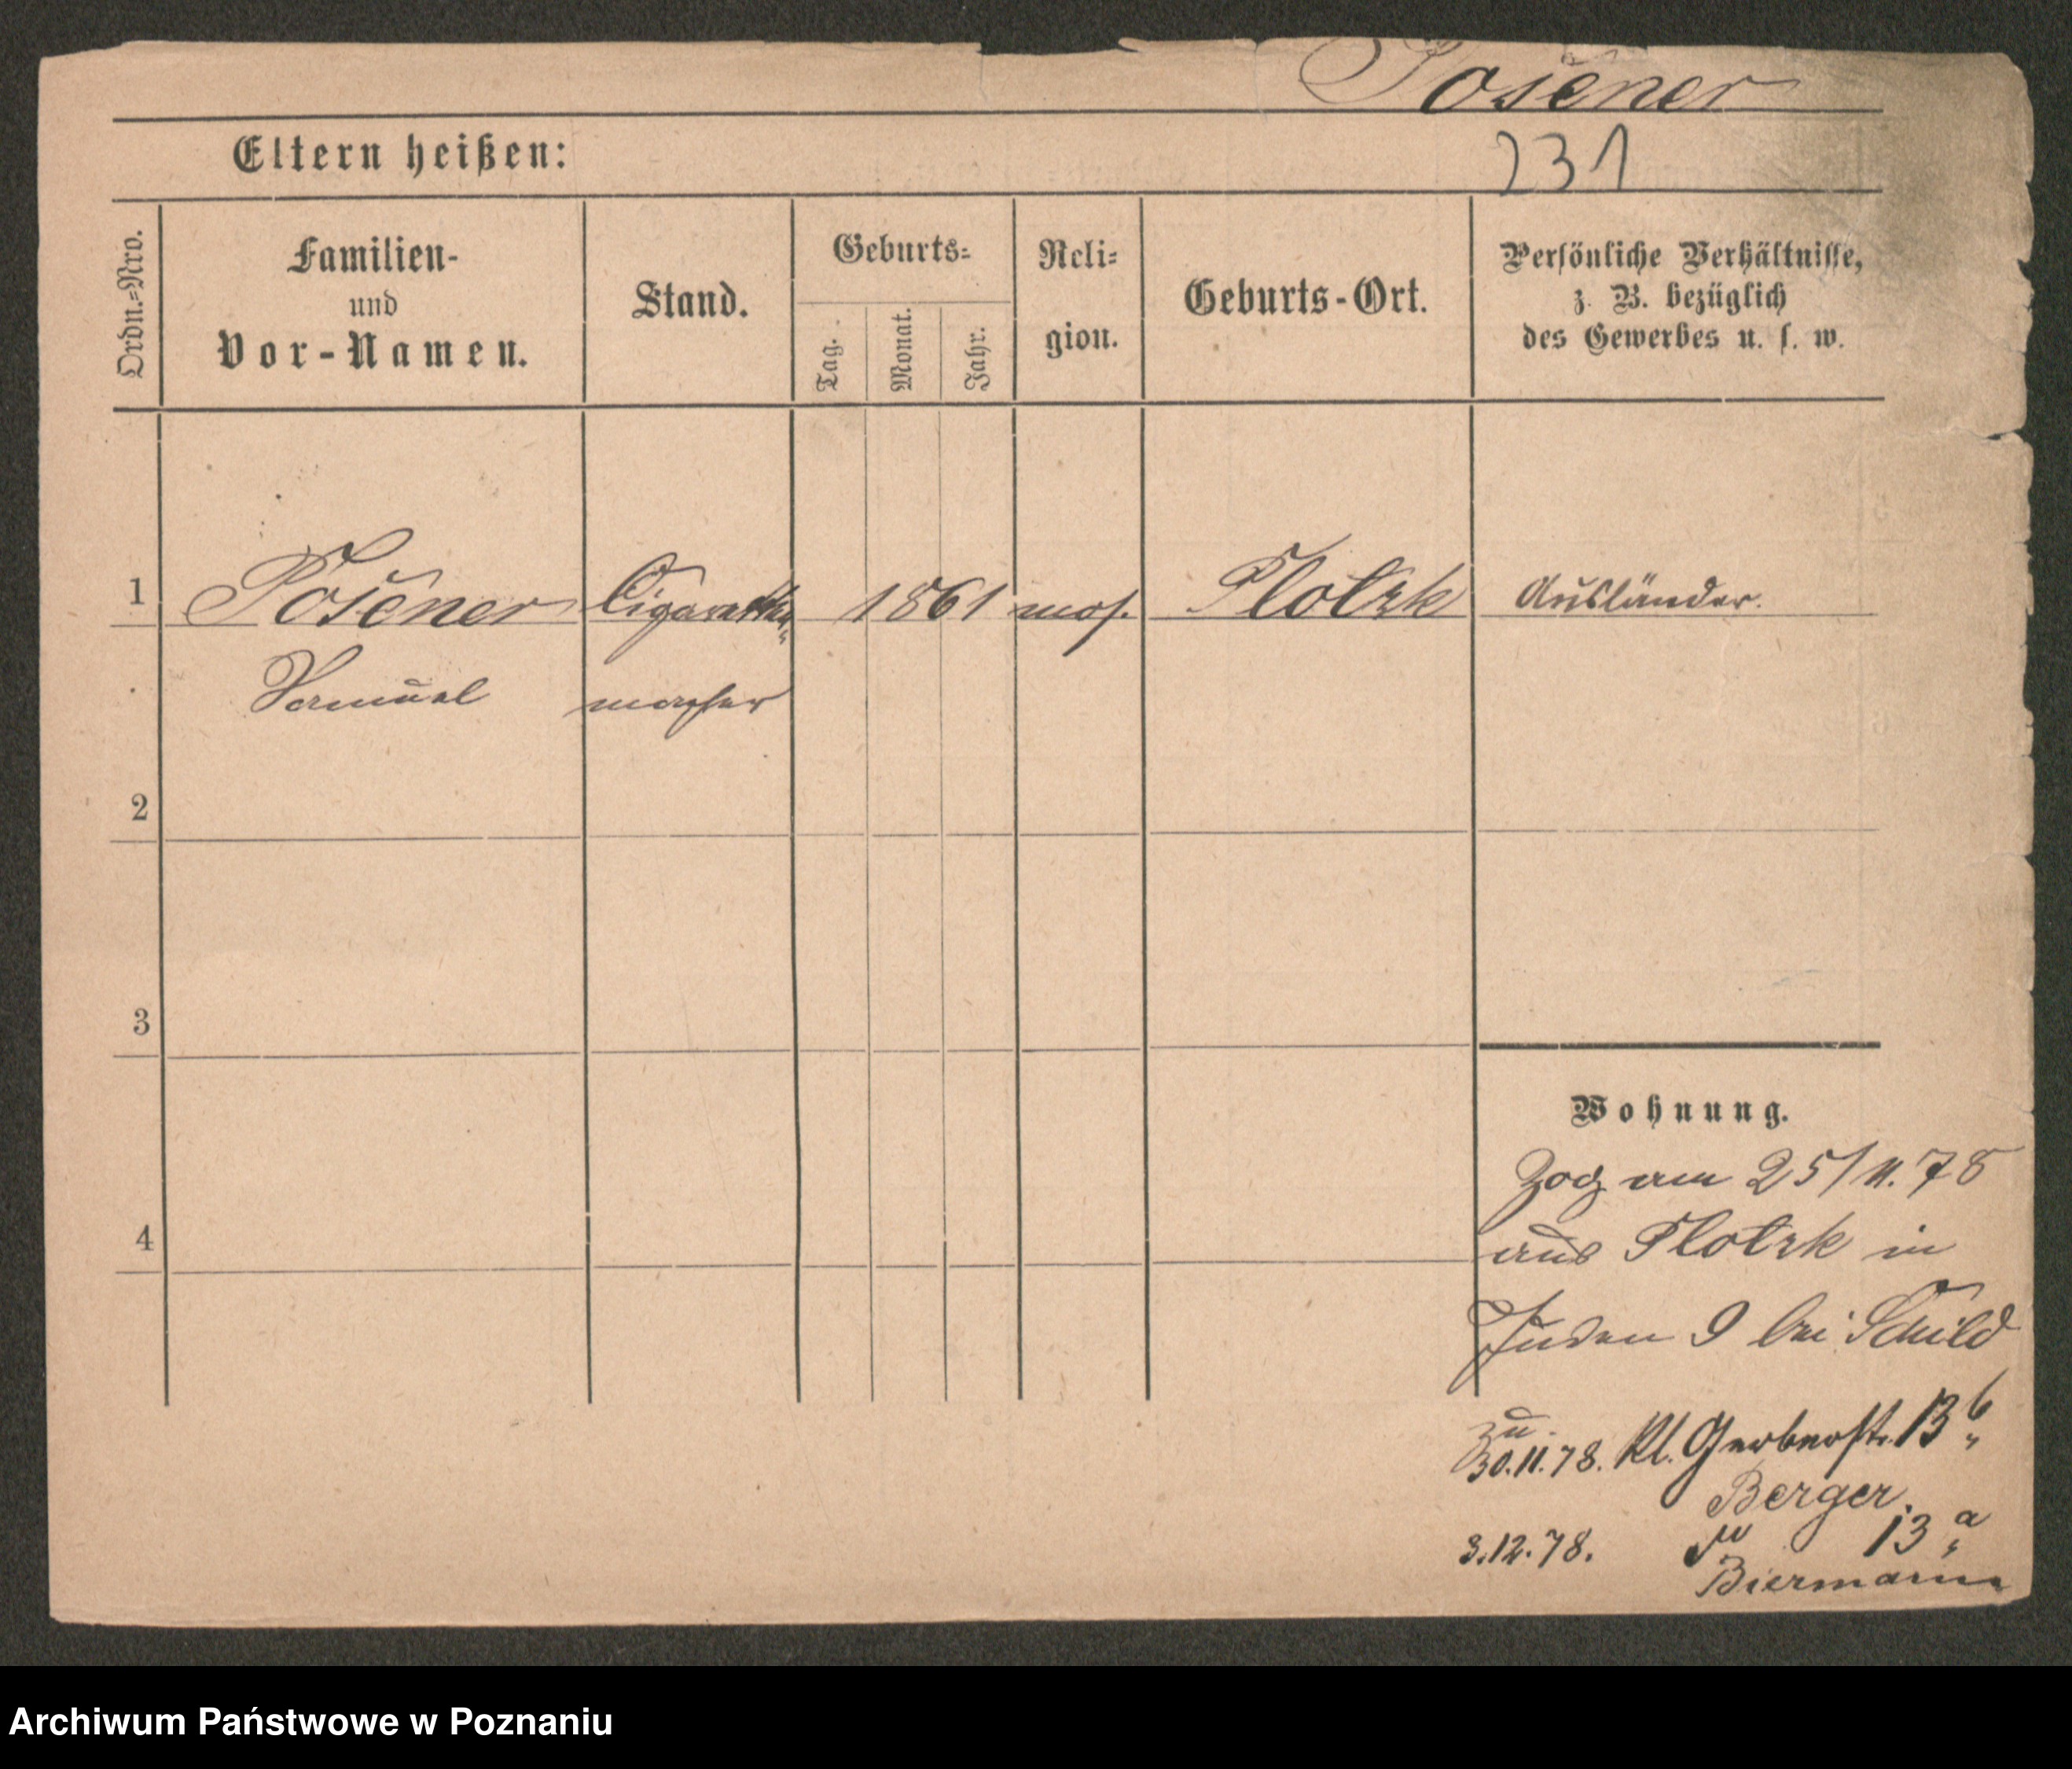 Posener
Eltern heißen:
231
Ordn.=Nro.
Familien-
und
Vor-Namen.
Stand.
Geburts=
Tag.
Monat.
Jahr.
Reli=
gion.
Geburts-Ort.
Persönliche Verhältnisse,
z. B. bezüglich
des Gewerbes u. s. w.
1 Posener Cigaretten= 1861 mos. Plotzk Ausländer.
Samuel macher
2
3
4
Wohnung.
Zog am 25/11.78
aus Plotzk in
Juden 9 bei Schild
zu
30.11.78. Kl. Gerberstr. 13 b
Berger.
3.12.78. 13 a
Biermann
Archiwum Państwowe w Poznaniu